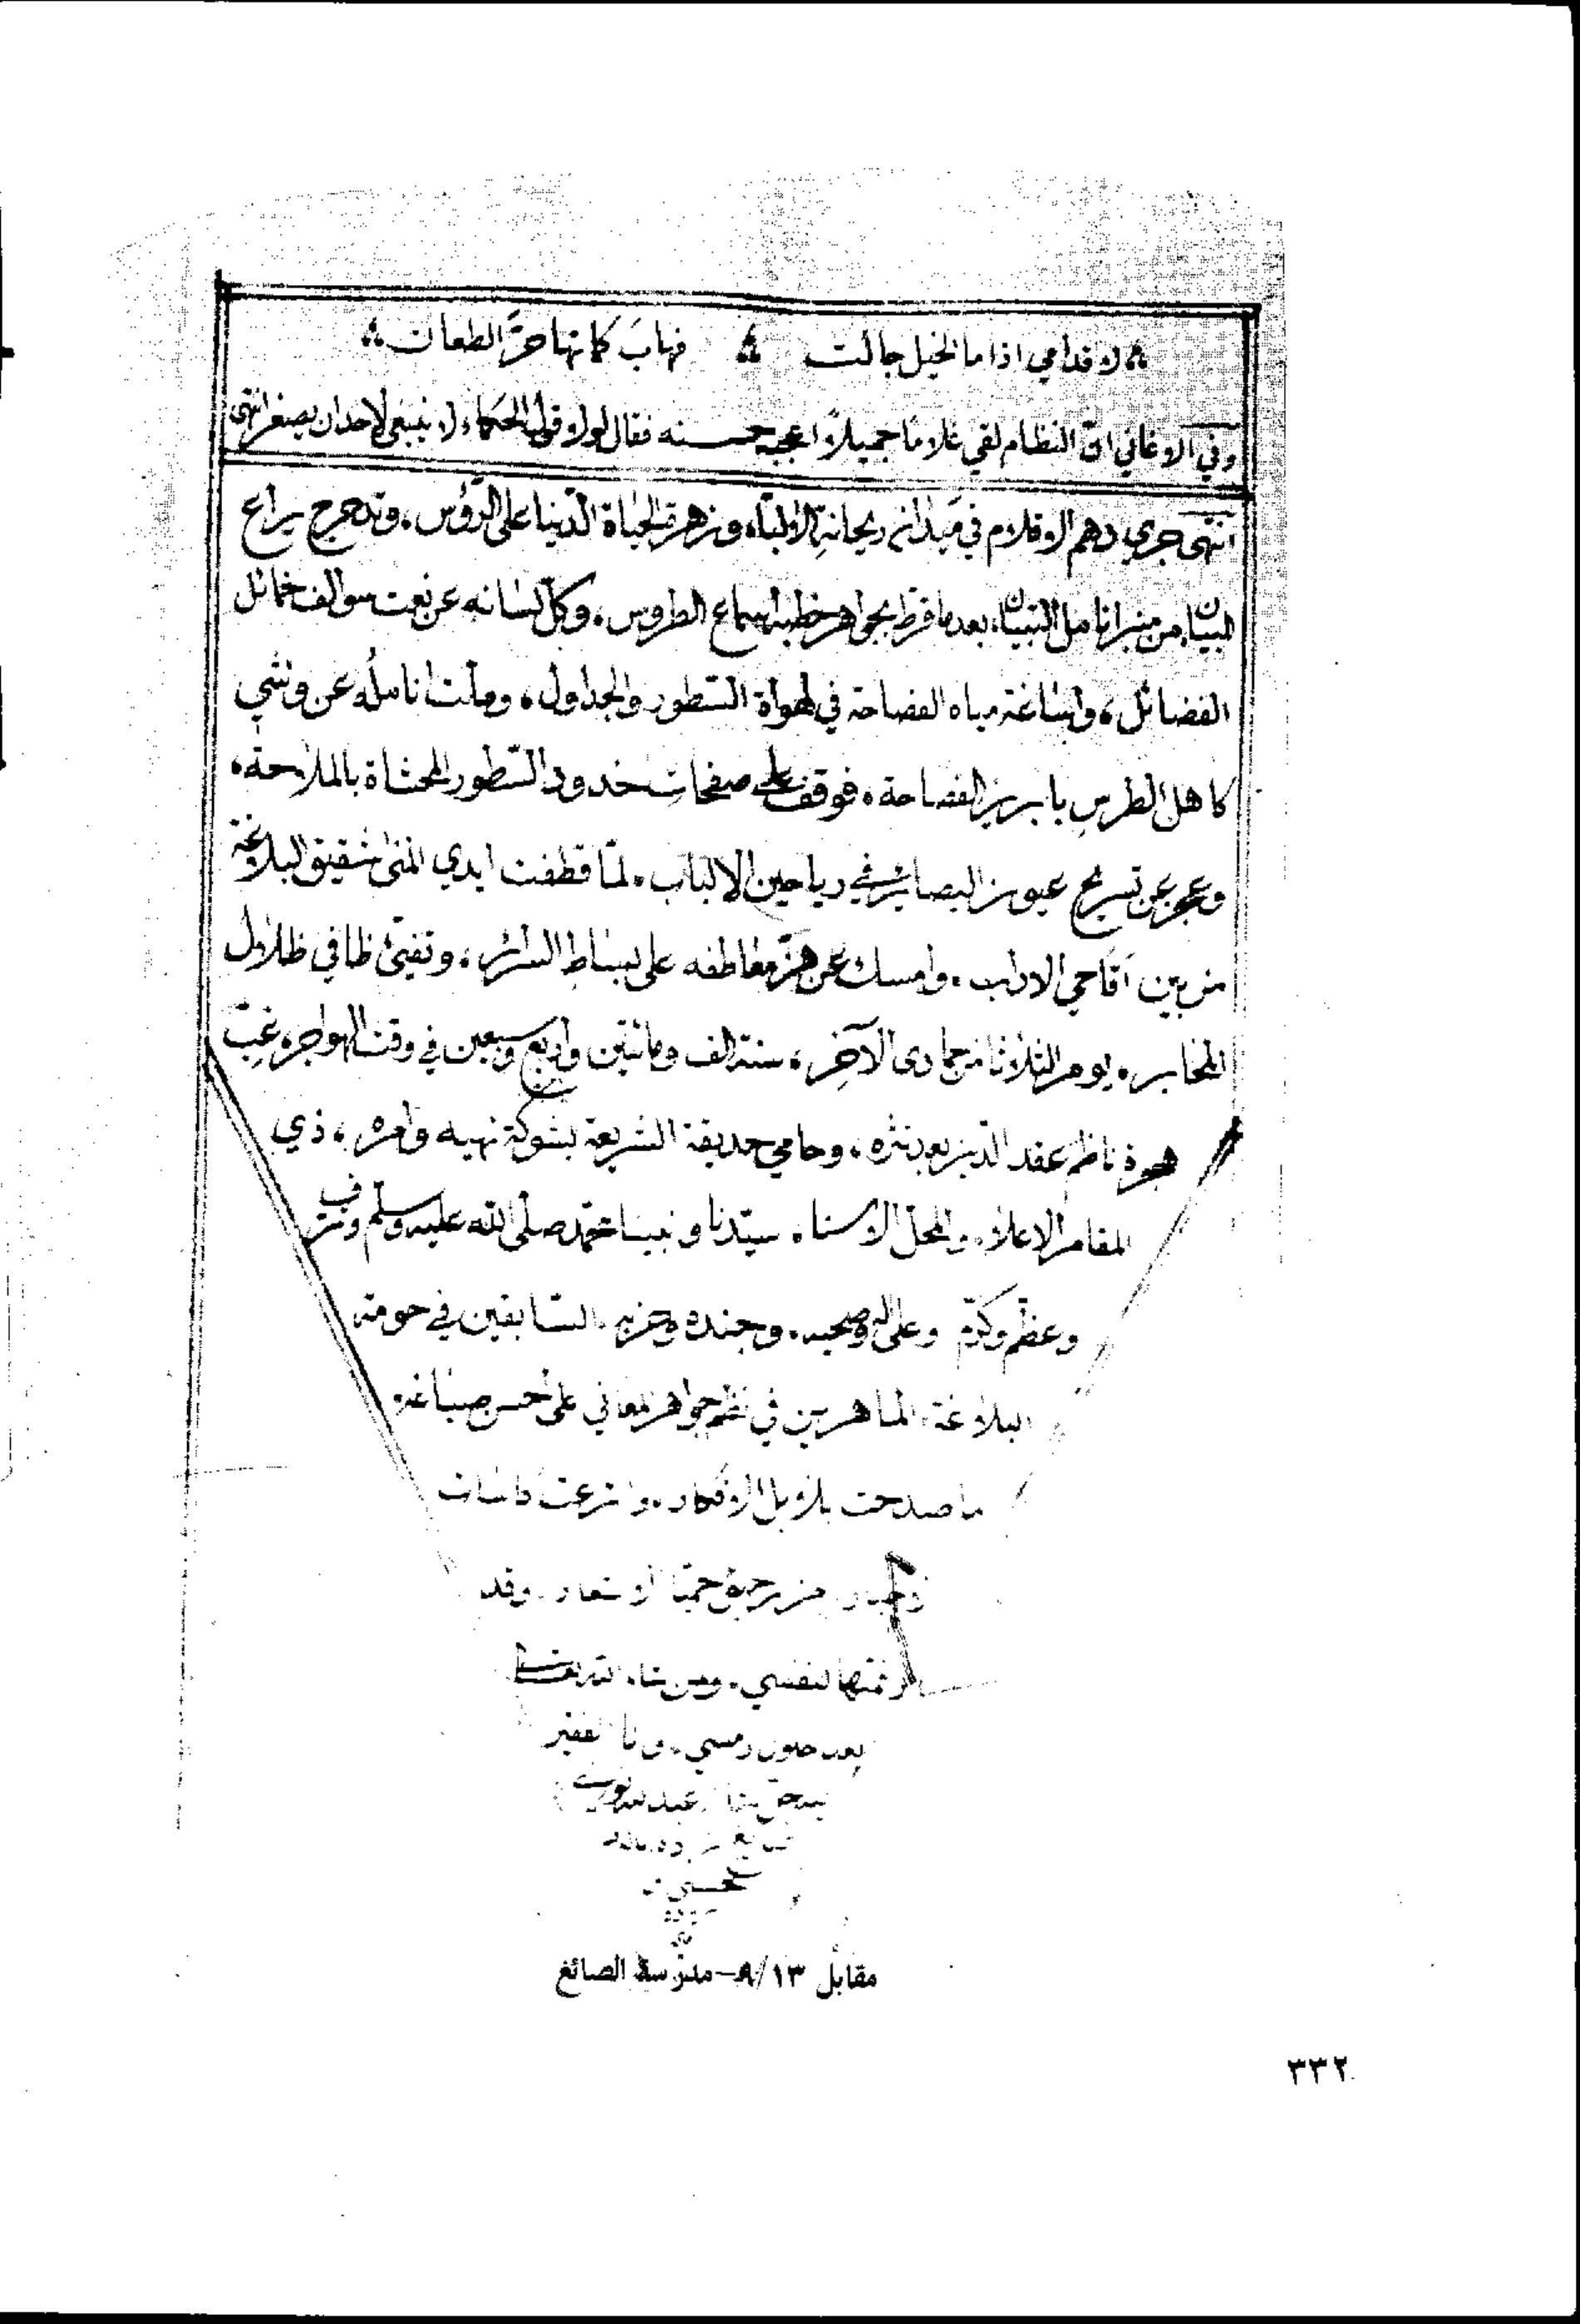 لاقدامي اذا ما الخيل جالت فهاب كماتها حرّ الطعان
وفي الاغاني انّ النظام لقي غلاماً جميلاً اعجبه حسنه فقال لولا قول الحكماء لا ينبغي لاحد ان يصغر انتهى
انتهى جري دهم الاقلام في ميدان ريحانة الالبّاء، وزهرة الحياة الدّنيا على الرّؤس. وتدحرج يراع
البيان من منبر انامل التبيان، بعد ما قرط بجواهر خطبه اسماع الطروس. وكلّ لسانه عن نعت سوالف خمائل
الفضائل، واساغة مياه الفصاحة في لهواة السّطور والجداول، وملت انامله عن وشي
كاهل الطرس بابريز الفصاحة. فوقف على صفحات خدود السّطور المحشاة بالملاحة،
وعجز عن تسريح عيون البصائر في رياحين الالباب. لمّا قطفت ايدي المنى شقيق البلاغة
من بين آقاحي الاداب. وامسك عن هزّ معاطفه على بساط السرائر، وتفيئ ظافي ظلال
المخابر. يوم الثلاثا من جمادى الآخر، سنة الف ومائتين واربع وسبعين في وقت الهواجر، غبّ
هجرة ناظم عقد الدّين بعد نثره، وحامي حديقة الشريعة بشوكة نهيه وامره، ذي
المقام الاعلا، والمحل الاسنا. سيّدنا ونبينا محمّد صلّى الله عليه وسلّم وشرف
وعظّم وكرّم وعلى آله وصحبه. وجنده وحزبه. السّابقين في حومة
البلاغة. الماهرين في نظم جواهر المعاني على احسن صياغة
ما صدحت بلابل الافكار. وانترعت كاسات
من رحيق حميّا الاشعار. وقد
رقمتها لنفسي. ومن شاء الله
بعد حلول رمسي. وانا الفقير
مقابل ٨/١٣ – مدرسة الصائغ
٣٣٢